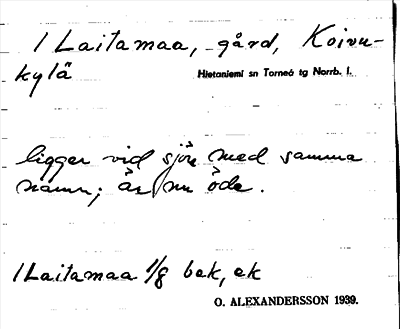 1 Laitamaa, gård, Koivu-
kylä Hietaniemi sn Torneå tg Norrb. l.
ligger vid sjön med samma
namn; är nu öde.
1 Laitamaa 1/8 bek, ek
O. ALEXANDERSSON 1939.